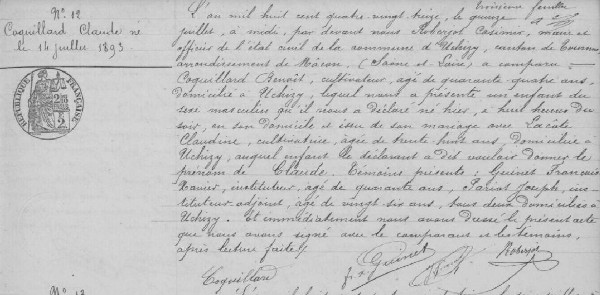 N° 12
Coquillard Claude né
le 14 juillet 1893
RÉPUBLIQUE FRANÇAISE
troisième feuillet
L'an mil huit cent quatre-vingt-treize, le quinze
juillet, à midi, par devant nous Roberjot Casimir, maire et
officier de l'état civil de la commune d'Uchizy, canton de Tournus
arrondissement de Mâcon. (Saône-et-Loire) a comparu:
Coquillard Benoît, cultivateur, agé de quarante-quatre ans,
domicilié à Uchizy, lequel nous a présenté un enfant du
sexe masculin qu'il nous a déclaré né hier, à huit heures du
soir, en son domicile et issu de son mariage avec
Claudine, cultivatrice, agée de trente huit ans, domiciliée à
Uchizy, auquel enfant le déclarant a dit vouloir donner le
prénom de Claude. Témoins présents: Guinet François
Xavier, instituteur, agé de quarante ans, Joseph, ins-
tituteur-adjoint, agé de vingt six ans, tous deux domiciliés à
Uchizy. Et immédiatement nous avons dressé le présent acte
que nous avons signé avec le comparant et les témoins,
après lecture faite.
Guinet
Roberjot
Coquillard
N° 13